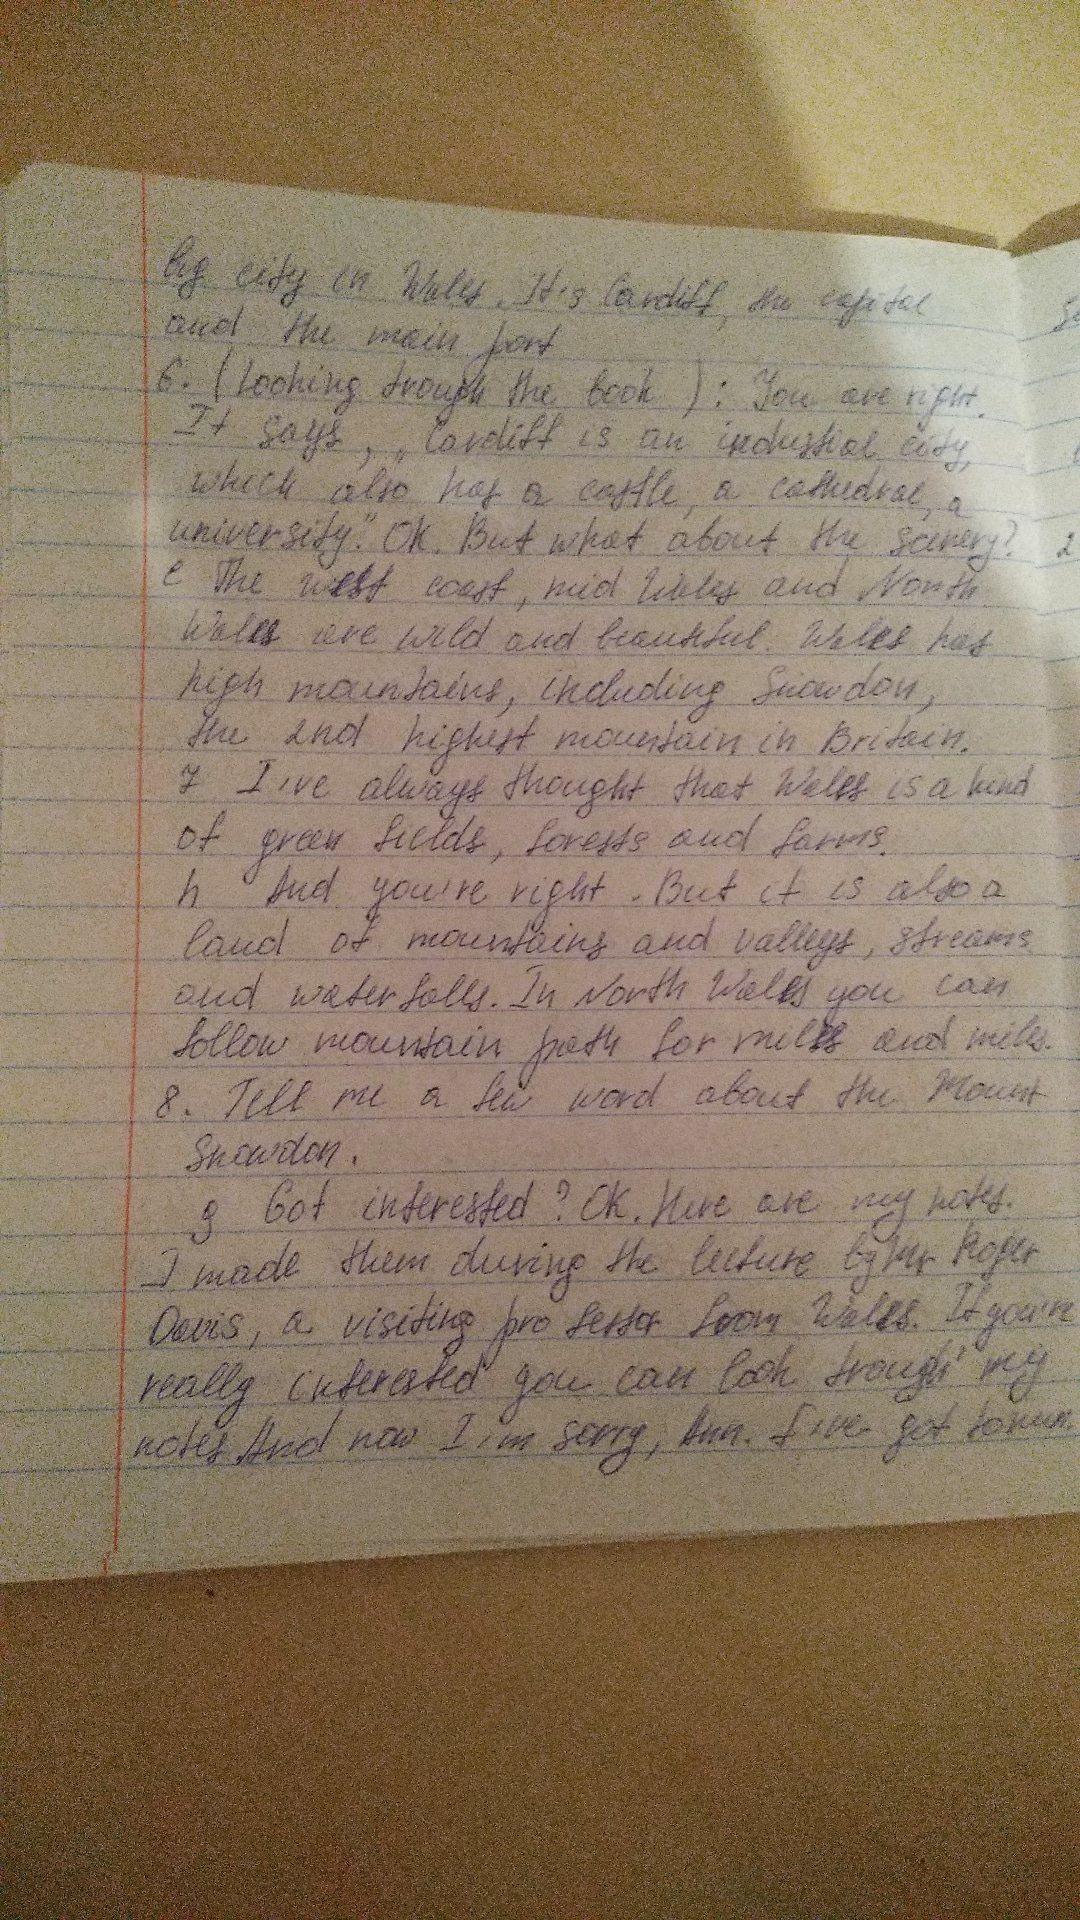 big city in Wales. It's Cardiff, the capital
and the main port
6. (Looking trough the book): You are right.
It says, „Cardiff is an industial city,
which also has a castle, a cathedral, a
university". OK. But what about the scenery?
e The west coast, mid Wales and North
Wales are wild and beautiful. Wales has
high mountains, including Snowdon,
the 2nd highest mountain in Britain.
7 I've always thought that Wales is a land
of green fields, forests and farms.
h And you're right. But it is also a
land of mountains and valleys, streams
and waterfalls. In North Wales you can
follow mountain path for miles and miles.
8. Tell me a few word about the Mount
Snowdon.
g Got interested? OK. Here are my notes.
I made them during the lecture by Mr Roger
Davis, a visiting professor from Wales. If you're
really interested you can look trough my
notes. And now I'm sorry, Ann. I've got to run.
2